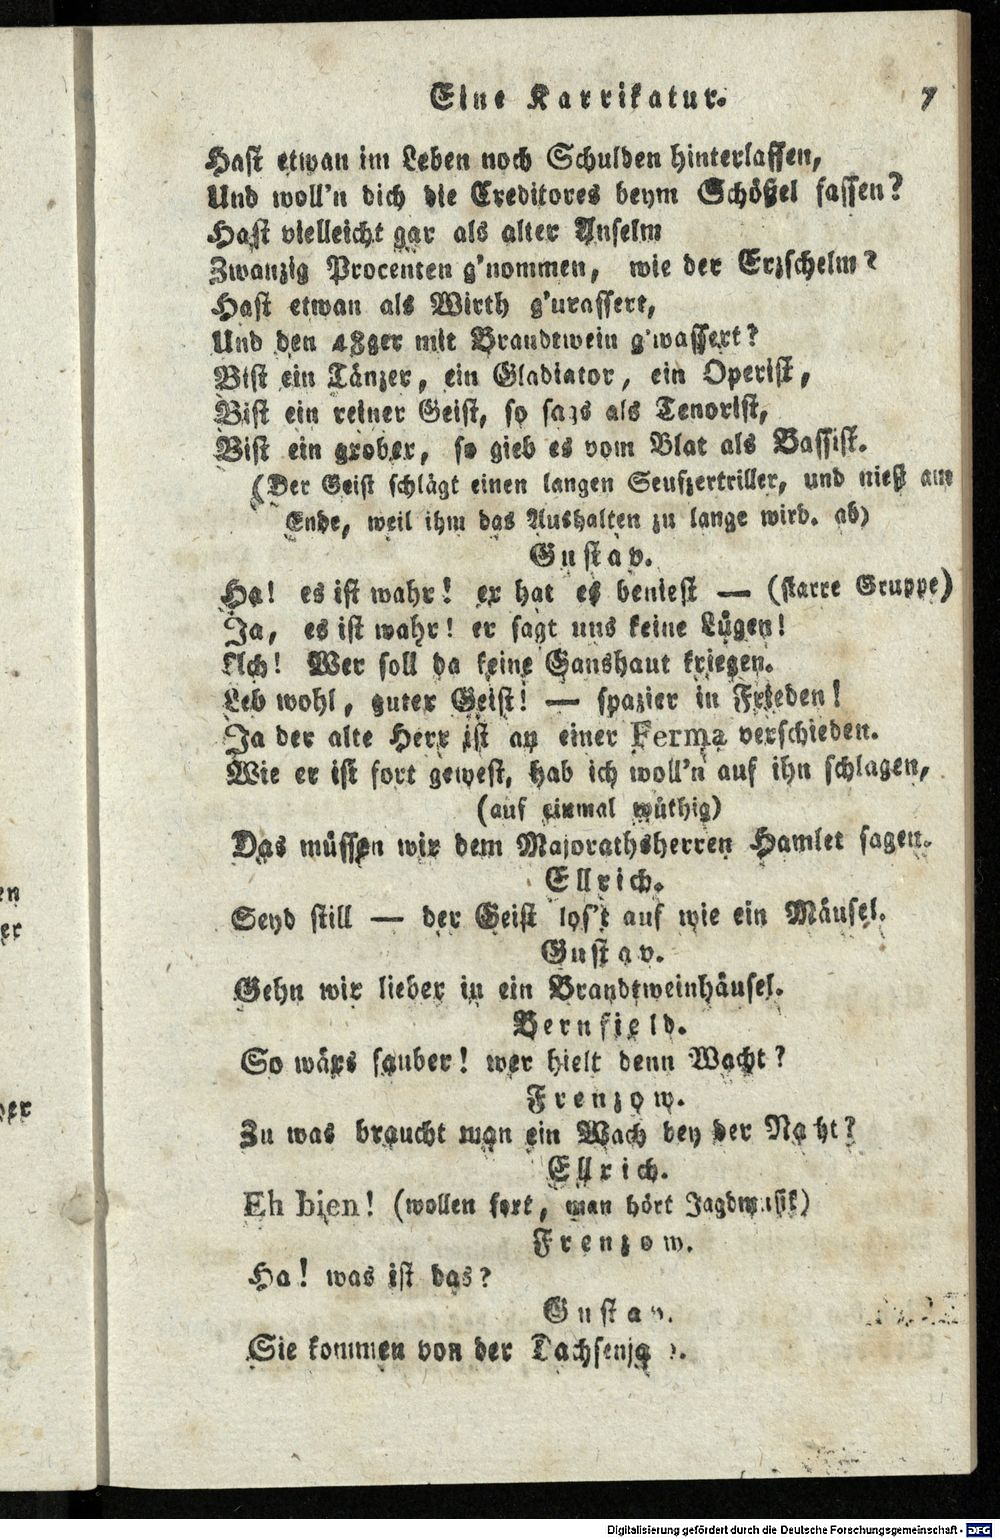 Eine Karrikatur. 7
Hast etwan im Leben noch Schulden hinterlassen,
Und woll'n dich die Creditores beym Schößel fassen?
Hast vielleicht gar als alter Anselm
Zwanzig Procenten g'nommen, wie der Erzschelm?
Hast etwan als Wirth g'urassert,
Und den 48ger mit Brandtwein g'wassert?
Bist ein Tänzer, ein Gladiator, ein Operist,
Bist ein reiner Geist, so sags als Tenorist,
Bist ein grober, so gieb es vom Blat als Bassist.
(Der Geist schlägt einen langen Seufzertriller, und nießt am
Ende, weil ihm das Aushalten zu lange wird. ab)
Gustav.
Ha! es ist wahr! er hat es beniest — (starre Gruppe)
Ja, es ist wahr! er sagt uns keine Lügen!
Ach! Wer soll da keine Ganshaut kriegen.
Leb wohl, guter Geist! — spazier in Frieden!
Ja der alte Herr ist an einer Ferma verschieden.
Wie er ist fort gewest, hab ich woll'n auf ihn schlagen,
(auf einmal wüthig)
Das müssen wir dem Majorathsherren Hamlet sagen.
Ellrich.
Seyd still — der Geist los't auf wie ein Mäusel.
Gustav.
Gehn wir lieber in ein Brandtweinhäusel.
Bernfield.
So wärs sauber! wer hielt denn Wacht?
Frenzow.
Zu was braucht man ein Wach bey der Nacht?
Ellrich.
Eh bien! (wollen fort, man hört Jagdmusik)
Frenzow.
Ha! was ist das?
Gustav.
Sie kommen von der Dachsenjagd.
en
er
der
Digitalisierung gefördert durch die Deutsche Forschungsgemeinschaft - DFG